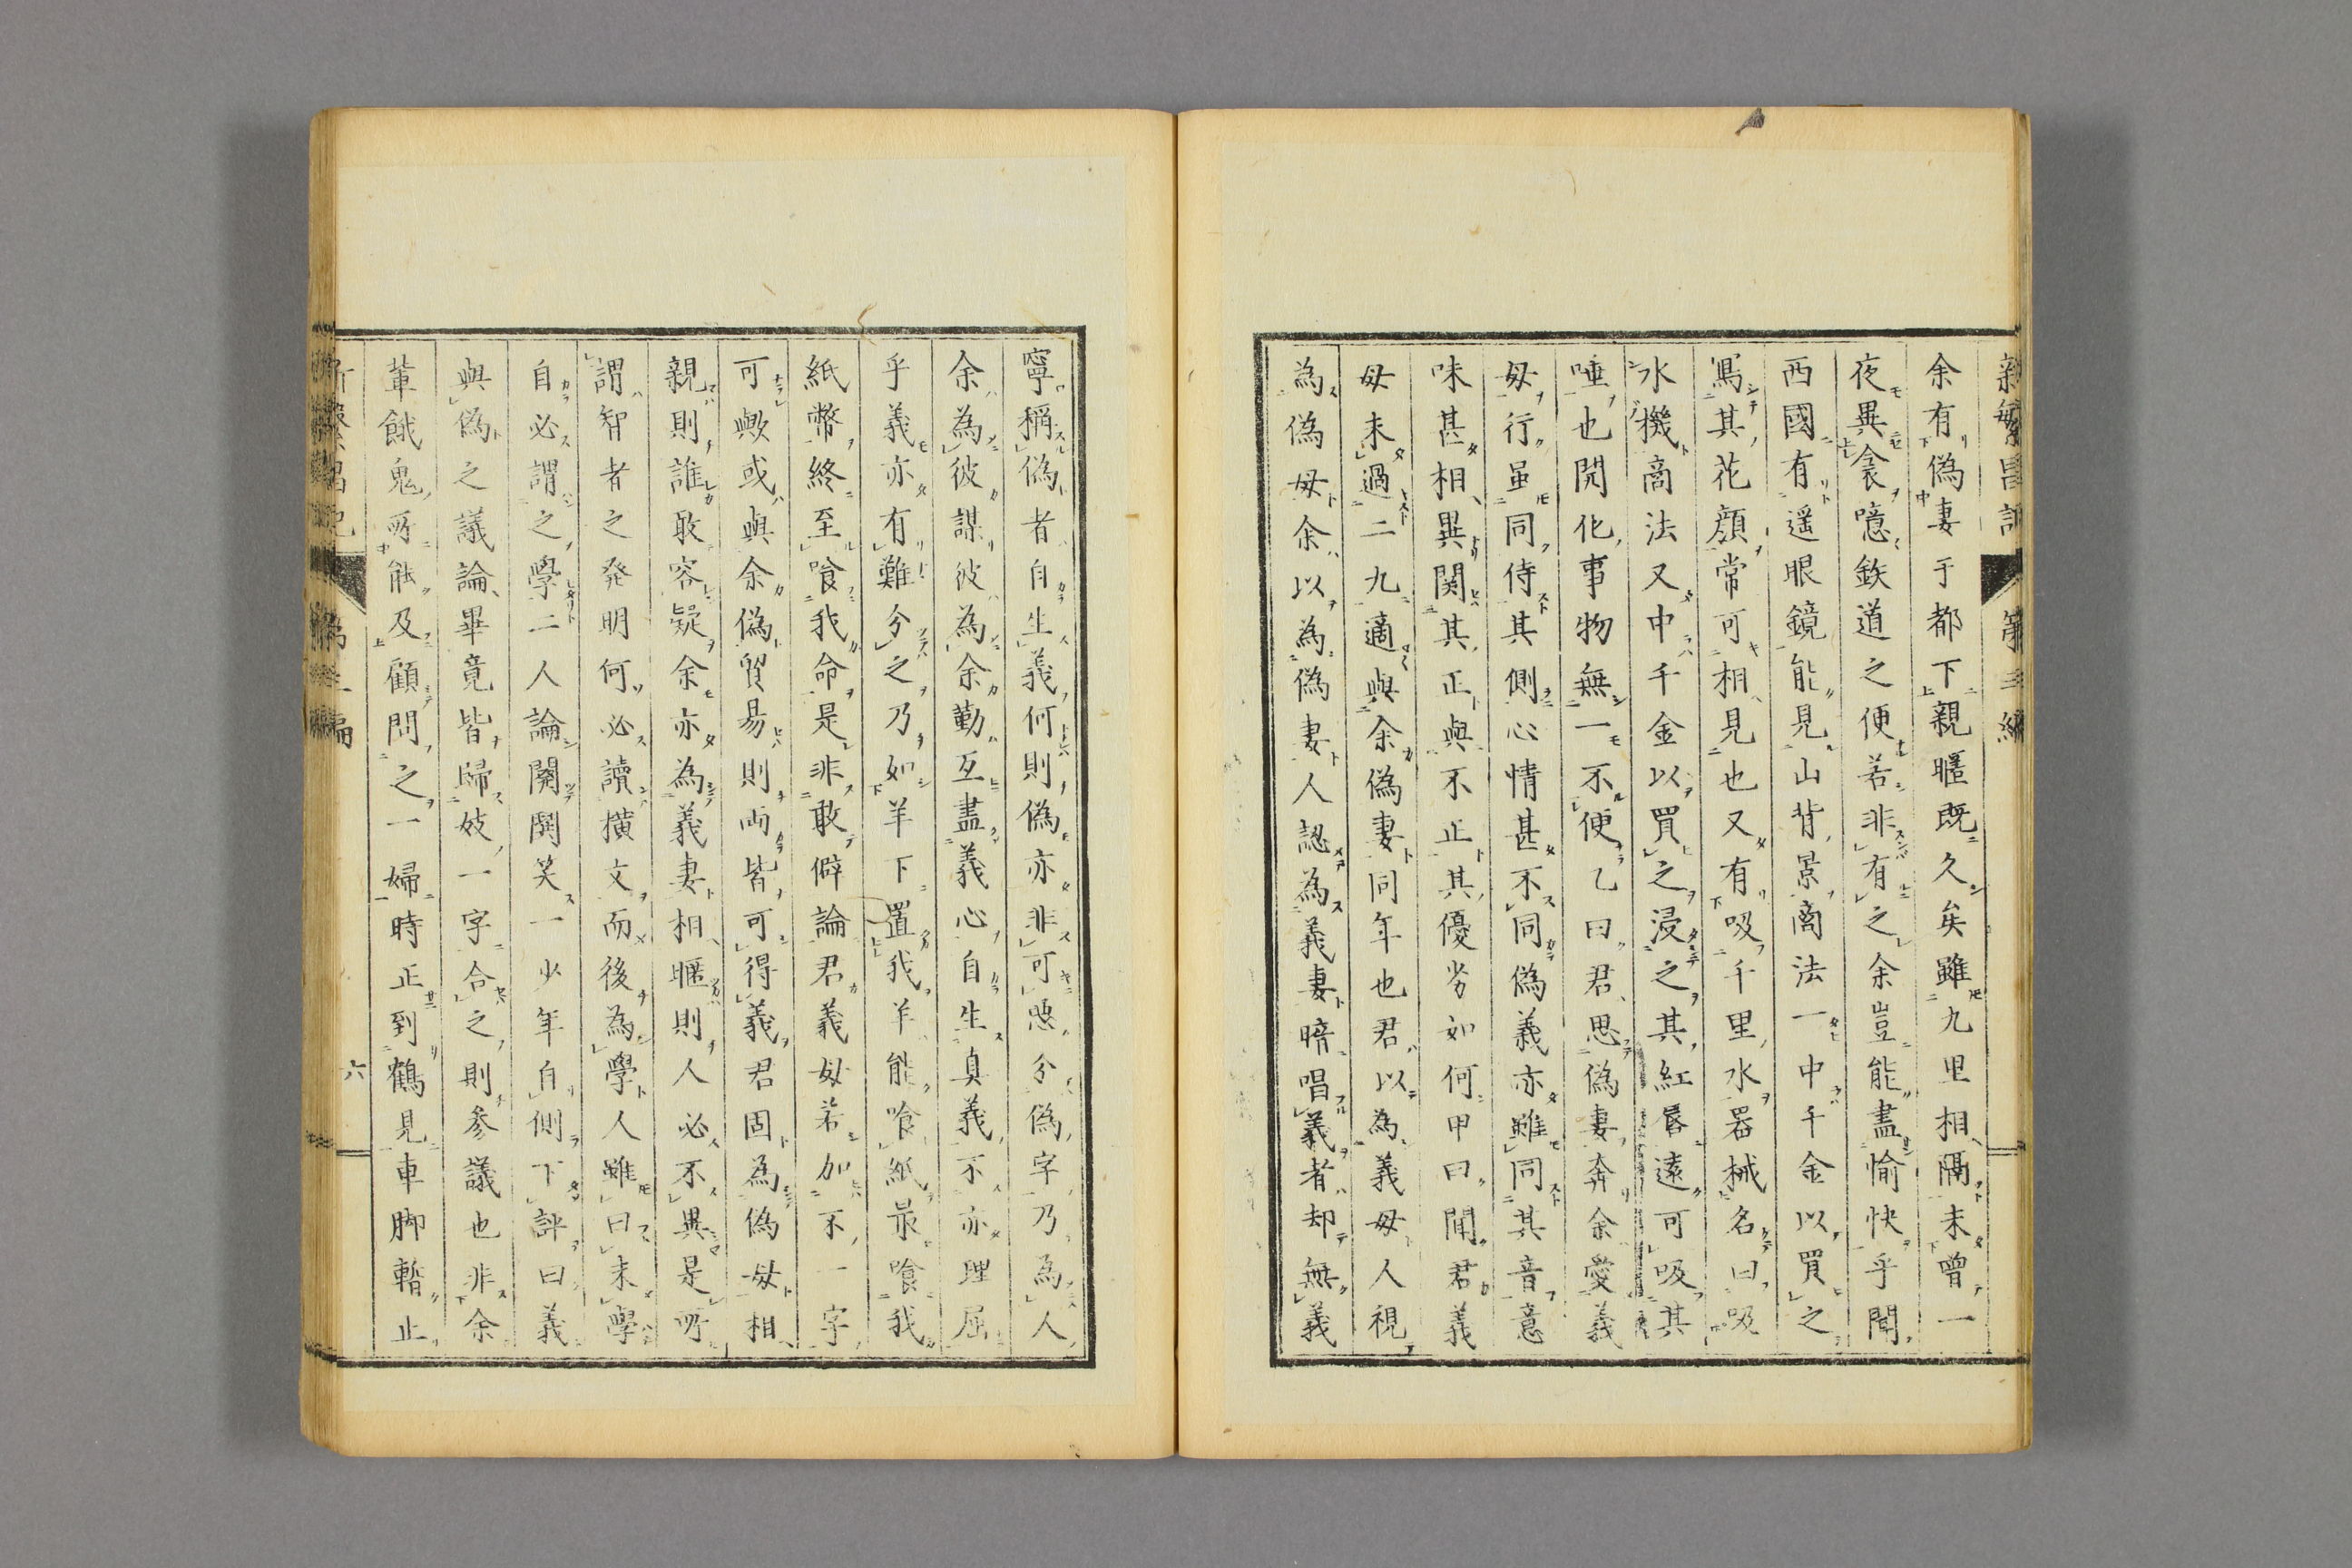 余有偽妻于都下親暱既久矣雖九里相隔未曽一
夜異衾噫鉄道之便若非有之余豈能盡愉快乎聞
西國有遥眼鏡能見山背景商法一中千金以買之
寫其花顔常可相見也又有吸千里水器械名曰吸
水機商法又中千金以買之浸之其紅唇遠可吸其
唾也開化事物無一不便乙曰君思偽妻奔余愛義
母行虽同侍其側心情甚不同偽義亦雖同其音意
味甚相異関其正與不正其優劣如何甲曰聞君義
母未過二九適與余偽妻同年也君以為義母人視
為偽母余以為偽妻人認為義妻暗唱義者却無義
寧稱偽者自生義何則偽亦非可悪分偽字乃為人
余為彼謀彼為余勤互盡義心自生真義不亦理屈
乎義亦有難分之乃如羊下置我羊能喰紙最喰我
紙幣終至喰我命是非敢僻論君義母若加不一字
可歟或與余偽貿易則両皆可得義君固為偽母相
親則誰敢容疑余亦為義妻相暱則人必不異是所
謂智者之発明何必讀横文而後為學人雖曰未學
自必謂之學二人論関関笑一少年自側下評曰義
與偽之議論畢竟皆歸妓一字合之則参議也非余
軰餓鬼所能及顧問之一婦時正到鶴見車脚暫止
六